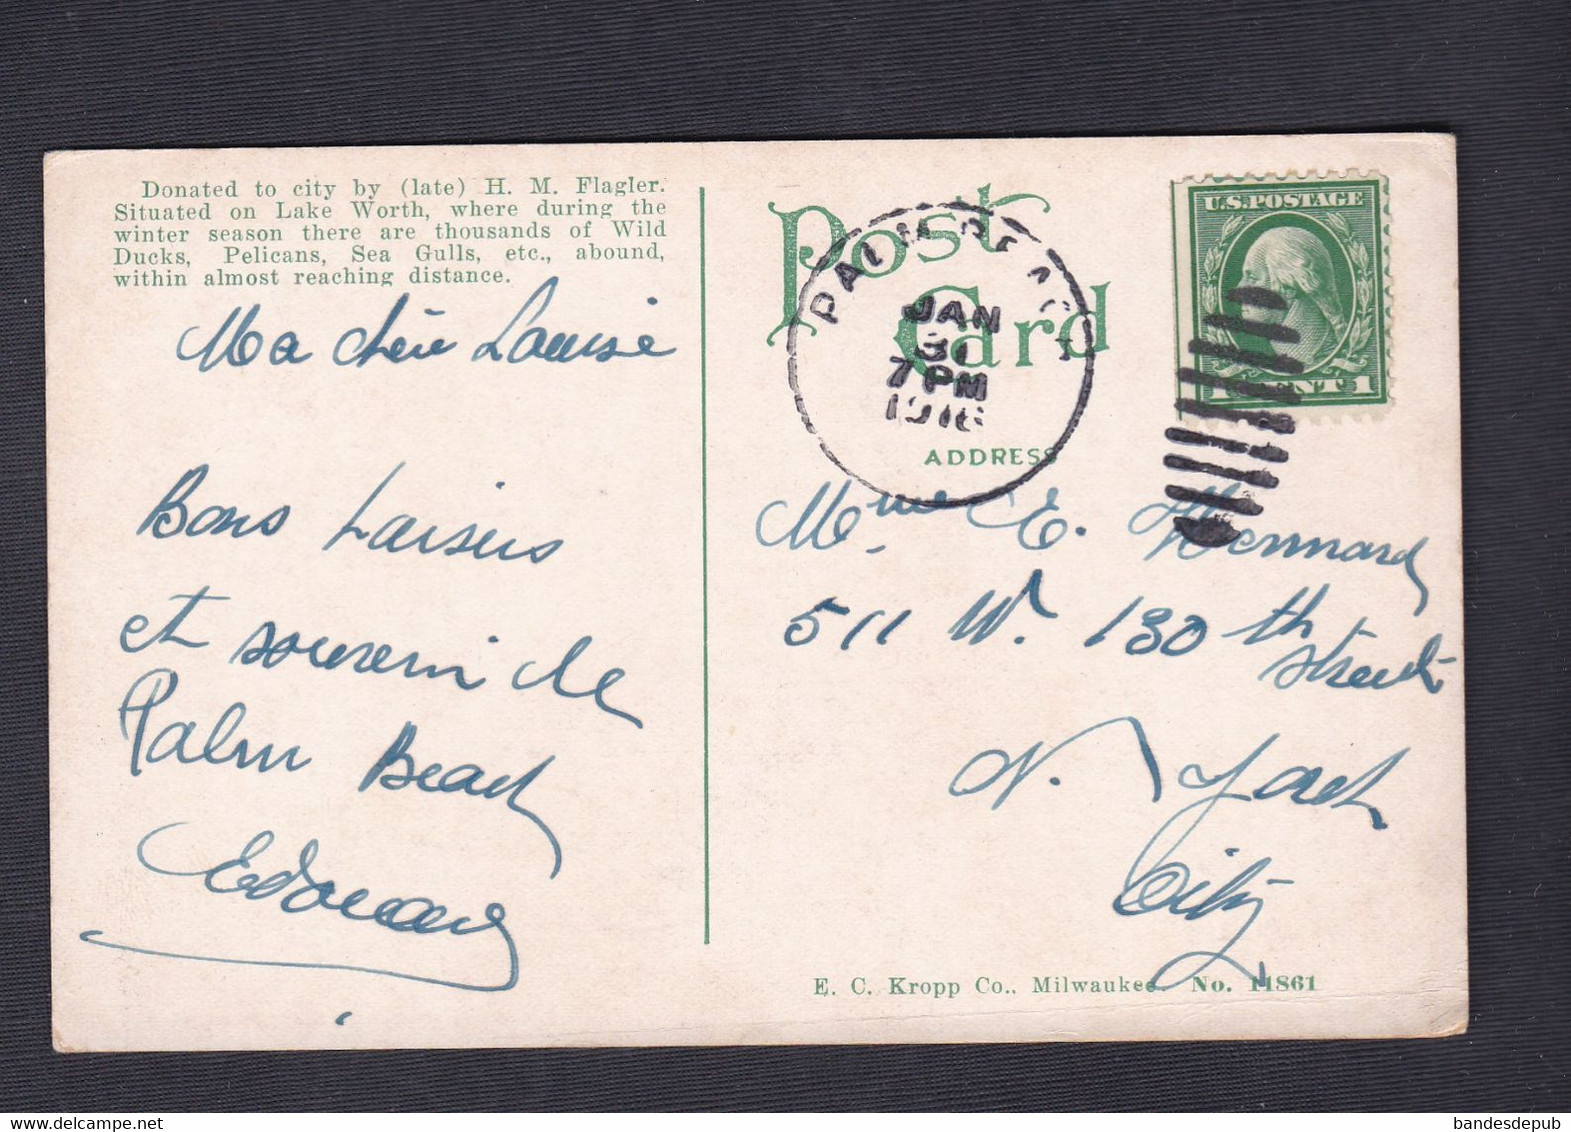 Donated to city by (late) H. M. Flagler.
Situated on Lake Worth, where during the
winter season there are thousands of Wild
Ducks, Pelicans, Sea Gulls, etc., abound,
within almost reaching distance.
Ma chère Louise
Bons baisers
et souvenir de
Palm Beach
Edouard
Post
Card
PALM BEACH
JAN
31
7 PM
1916
U.S. POSTAGE
1 CENT 1
ADDRESS
Mme E. Hennard
511 W. 130th
street
N. York
City
E. C. Kropp Co., Milwaukee. No. 11861
bandesdepub